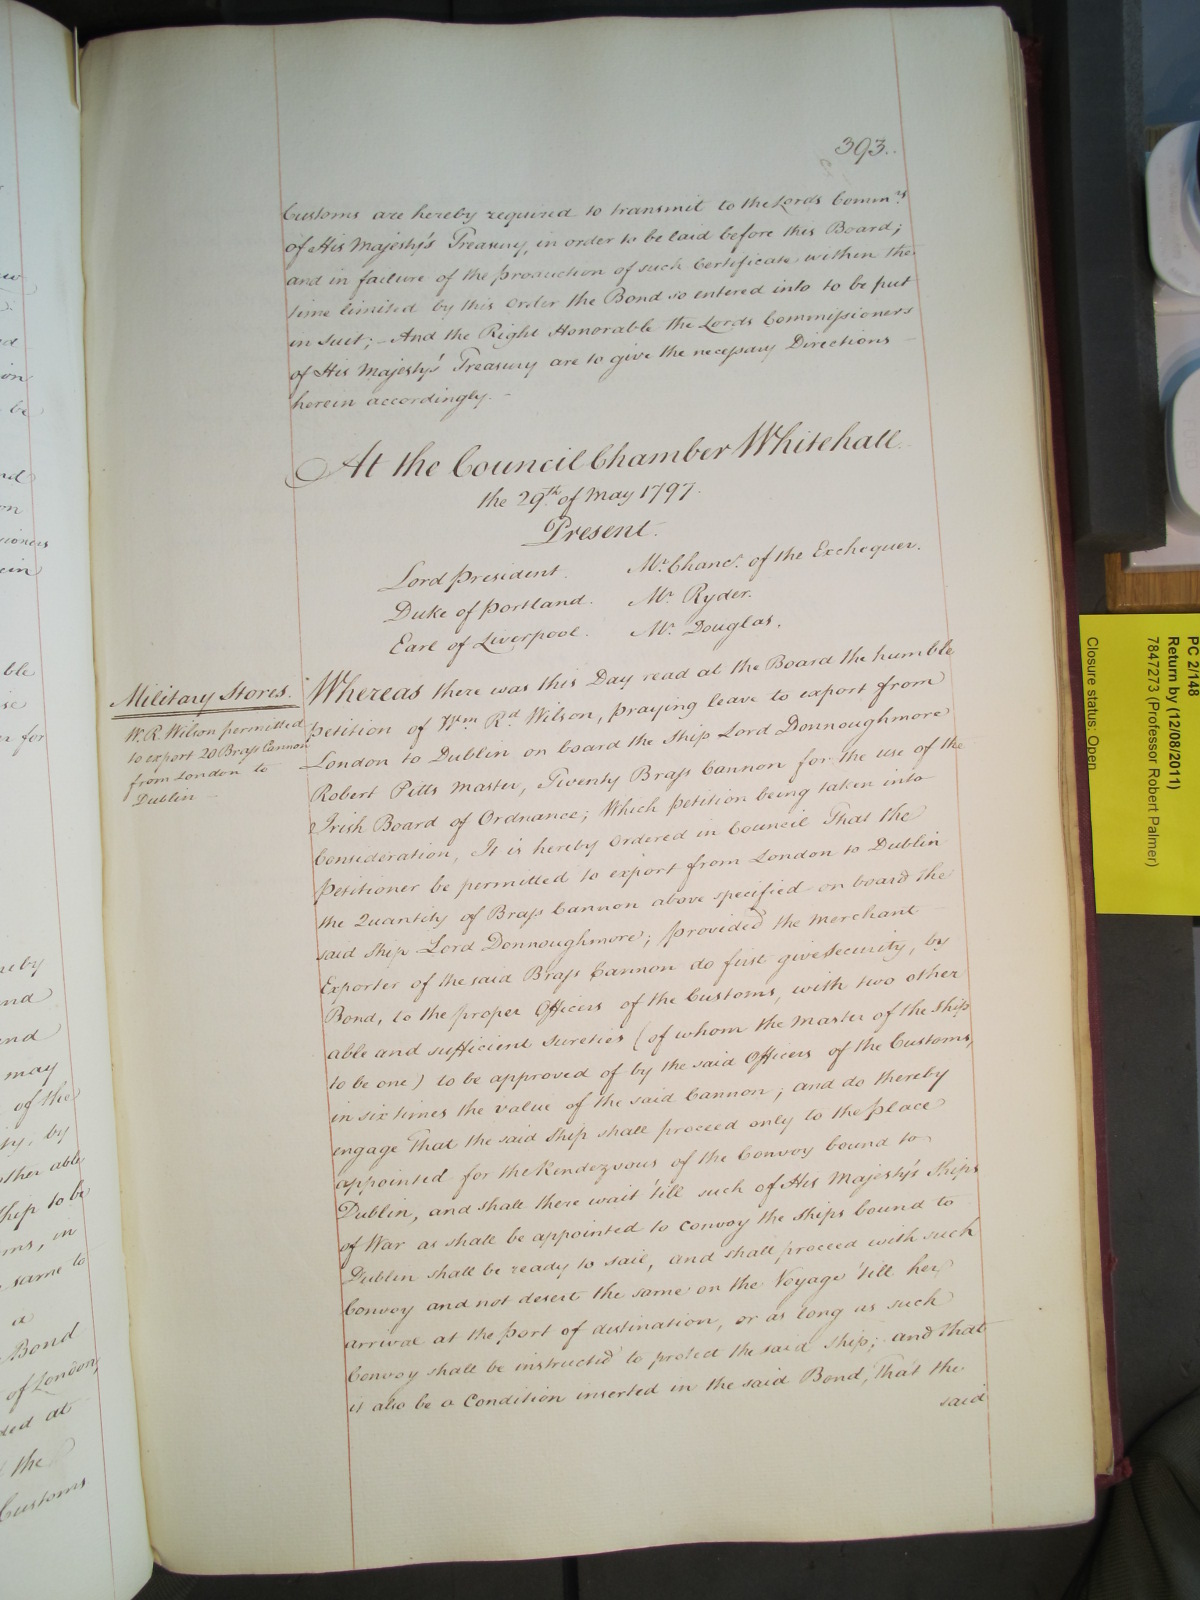 393.
Customs are hereby required to transmit to the Lords Comm.rs
of His Majesty's Treasury, in order to be laid before this Board;
and in failure of the production of such Certificate within the
time limited by this Order the Bond so entered into to be put
in suit; - And the Right Honorable the Lords Commissioners
of His Majesty's Treasury are to give the necessary Directions
herein accordingly. -
At the Council Chamber Whitehall.
the 29th of May 1797.
Present.
Lord President. Mr. Chanc.r of the Exchequer.
Duke of Portland. Mr. Ryder.
Earl of Liverpool. Mr. Douglas.
Military Stores.
W. R. Wilson permitted
to export 20 Brass Cannon
from London to
Dublin -
Whereas there was this Day read at the Board the humble
Petition of Wm. Rd. Wilson, praying leave to export from
London to Dublin on board the Ship Lord Donnoughmore
Robert Pitts Master, Twenty Brass Cannon for the use of the
Irish Board of Ordnance; Which Petition being taken into
Consideration, It is hereby Ordered in Council That the
Petitioner be permitted to export from London to Dublin
the Quantity of Brass Cannon above specified on board the
said Ship Lord Donnoughmore; provided the Merchant
Exporter of the said Brass Cannon do first give Security, by
Bond, to the proper Officers of the Customs, with two other
able and sufficient sureties (of whom the Master of the Ship
to be one) to be approved of by the said Officers of the Customs,
in six times the value of the said Cannon; and do thereby
engage That the said Ship shall proceed only to the place
appointed for the Rendezvous of the Convoy bound to
Dublin, and shall there wait 'till such of His Majesty's Ships
of War as shall be appointed to convoy the Ships bound to
Dublin shall be ready to sail, and shall proceed with such
Convoy and not desert the same on the Voyage 'till her
arrival at the Port of destination, or as long as such
Convoy shall be instructed to protect the said Ship; and that
it also be a Condition inserted in the said Bond, That the
said
PC 2/148
Return by (12/08/2011)
7847273 (Professor Robert Palmer)
Closure status: Open